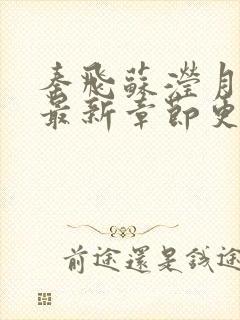 秦飛蘇瀅月
最新章節更
前途還是錢途